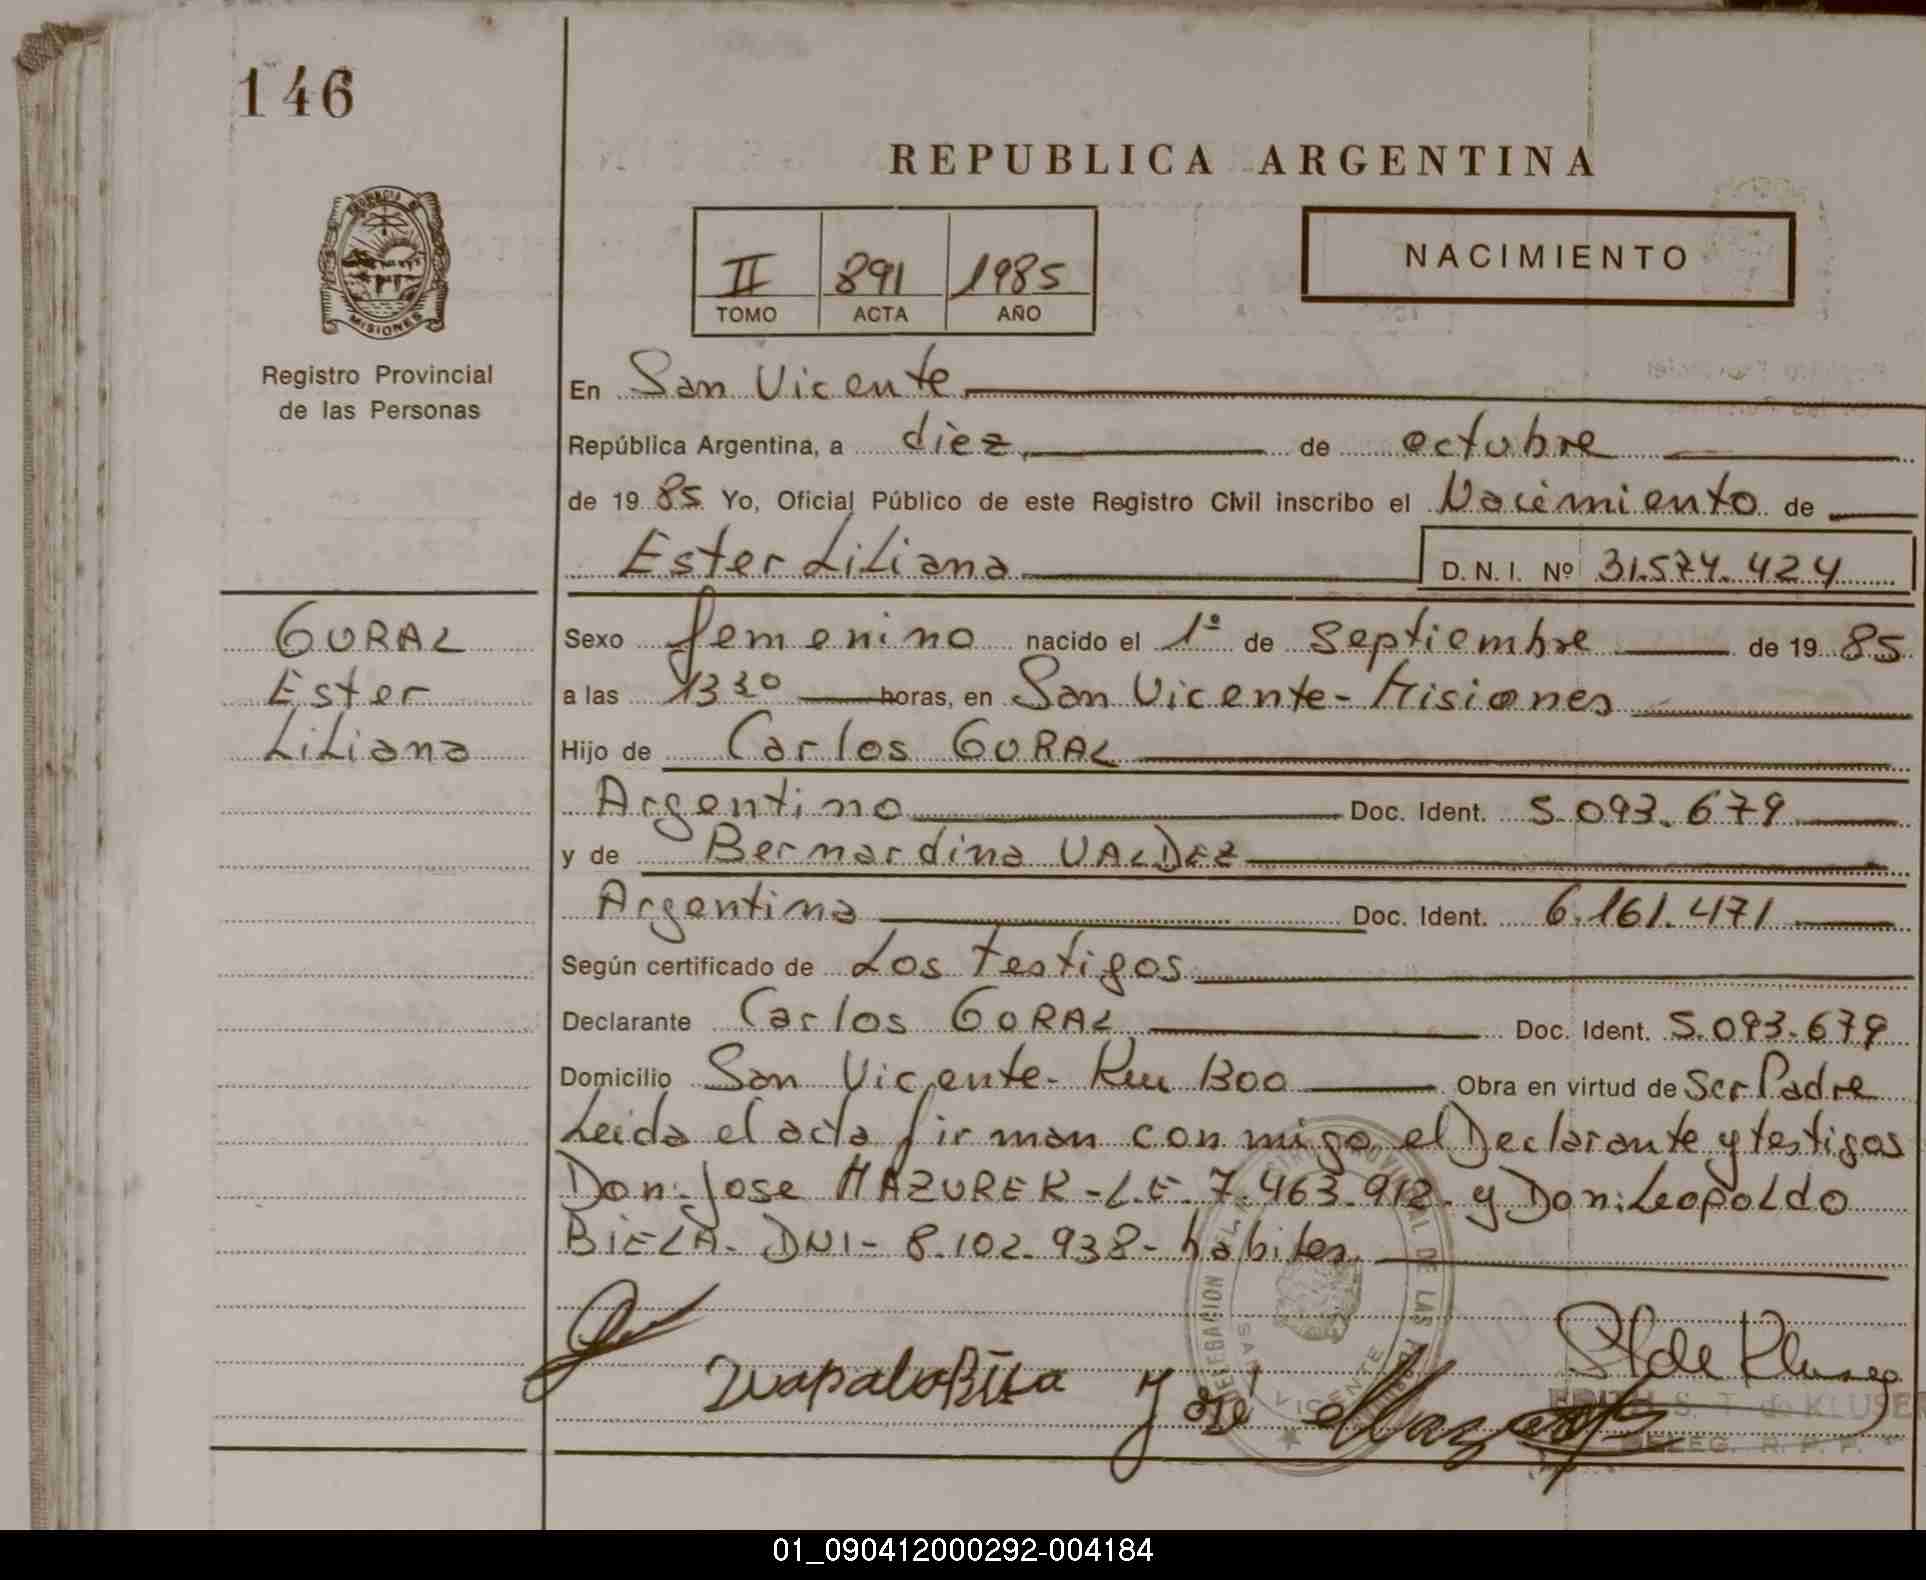 146
REPUBLICA ARGENTINA
PROVINCIA DE MISIONES
Registro Provincial
de las Personas
II 891 1985
TOMO ACTA AÑO
NACIMIENTO
En San Vicente
República Argentina, a diez de octubre
de 1985 Yo, Oficial Público de este Registro Civil inscribo el Nacimiento de
Ester Liliana D. N. I. Nº 31.574.424
GURAL
Ester
Liliana
Sexo femenino nacido el 1º de Septiembre de 1985
a las 13 30 horas, en San Vicente - Misiones
Hijo de Carlos GURAL
Argentino Doc. Ident. 5.093.679
y de Bernardina VALDEZ
Argentina Doc. Ident. 6.161.471
Según certificado de Los testigos
Declarante Carlos GURAL Doc. Ident. 5.093.679
Domicilio San Vicente - Km 1300 Obra en virtud de Ser Padre
Leida el acta firman con migo el Declarante y testigos
Don: Jose MAZUREK - L.E. 7.463.912 - y Don: Leopoldo
BIELA - DNI - 8.102.938 - habiles
José
de Kluseg
EDITH S. T. de KLUSE
DELEG. R. P. P.
DELEGACION
SAN VICENTE
01_090412000292-004184